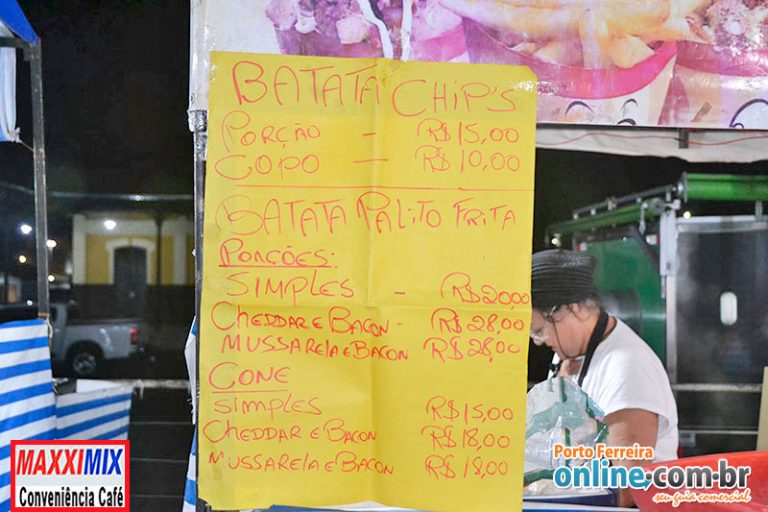 BATATA CHIP'S
PORÇÃO - R$15,00
COPO — R$10,00
BATATA PALITO FRITA
PORÇÕES:
SIMPLES - R$20,00
CHEDDAR E BACON - R$28,00
MUSSARELA E BACON R$28,00
CONE
SIMPLES R$15,00
CHEDDAR E BACON R$18,00
MUSSARELA E BACON R$18,00
MAXXIMIX
Conveniência Café
Porto Ferreira
online.com.br
seu guia comercial